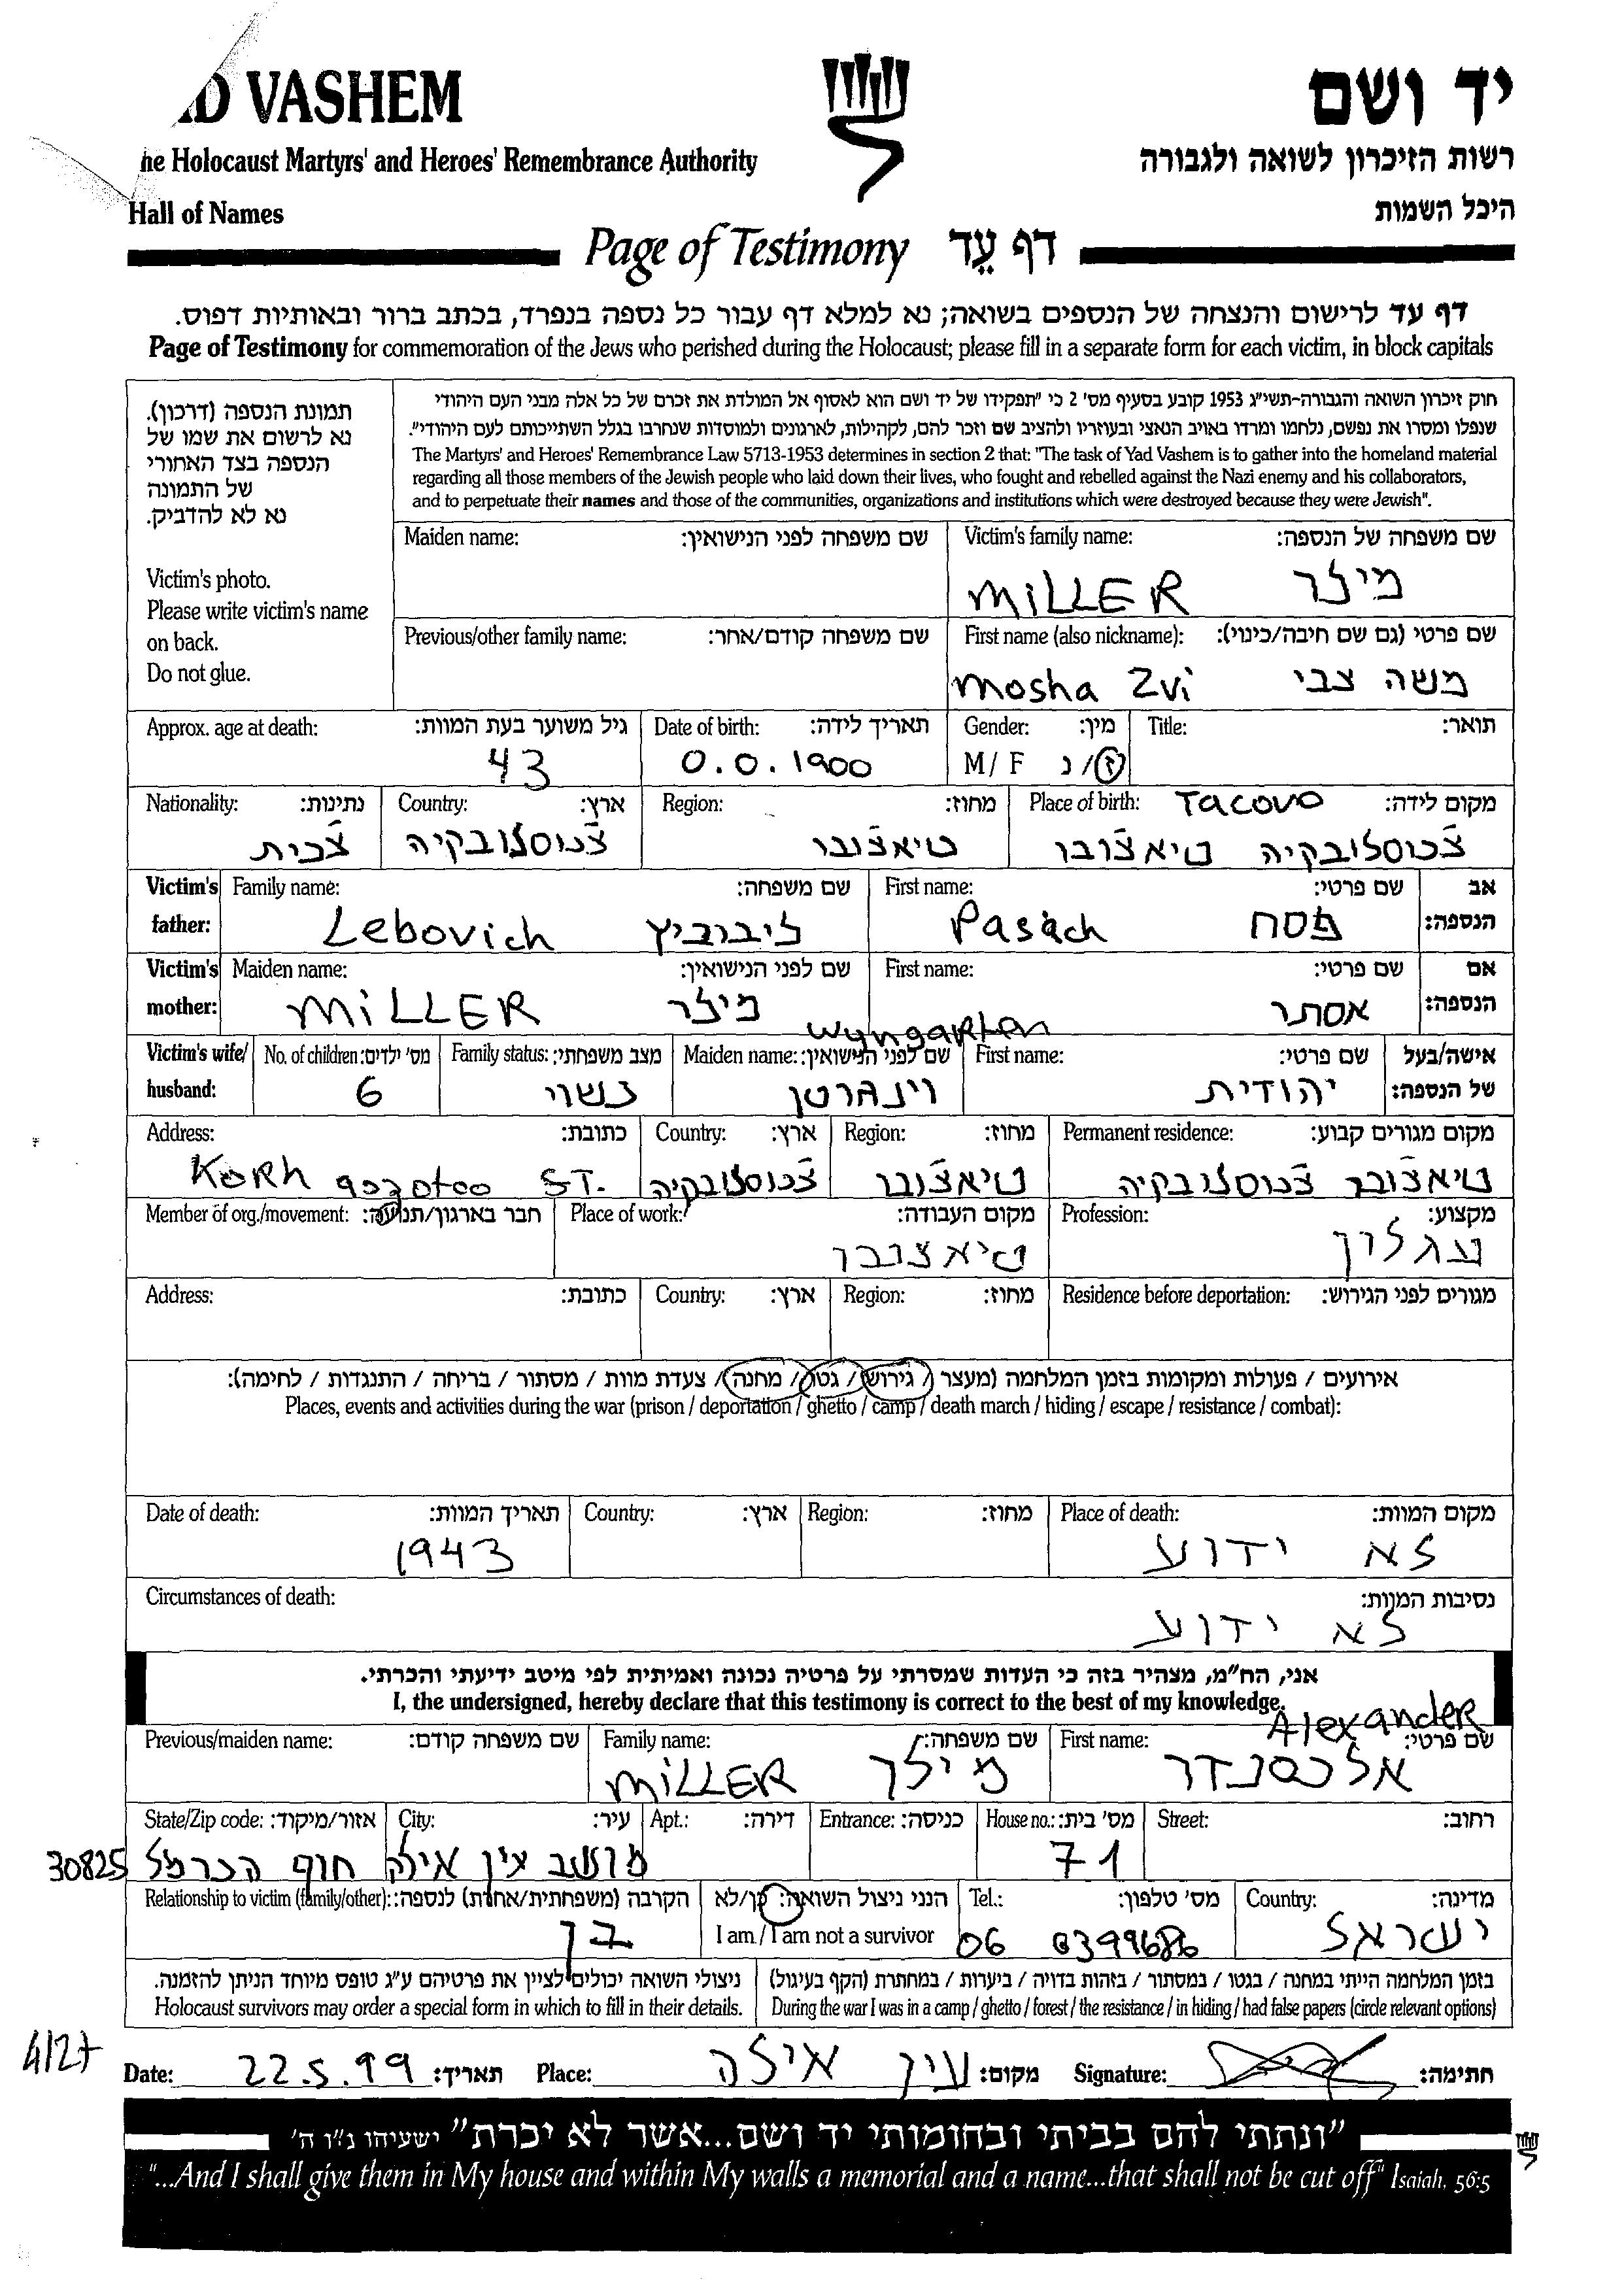 VASHEM יד ושם
he Holocaust Martyrs' and Heroes' Remembrance Authority רשות הזיכרון לשואה ולגבורה
Hall of Names היכל השמות
Page of Testimony דף עֵד
דף עד לרישום והנצחה של הנספים בשואה; נא למלא דף עבור כל נספה בנפרד, בכתב ברור ובאותיות דפוס.
Page of Testimony for commemoration of the Jews who perished during the Holocaust; please fill in a separate form for each victim, in block capitals
תמונת הנספה (דרכון).
נא לרשום את שמו של
הנספה בצד האחורי
של התמונה
נא לא להדביק.
Victim's photo.
Please write victim's name
on back.
Do not glue.
חוק זיכרון השואה והגבורה-תשי"ג 1953 קובע בסעיף מס' 2 כי "תפקידו של יד ושם הוא לאסוף אל המולדת את זכרם של כל אלה מבני העם היהודי
שנפלו ומסרו את נפשם, נלחמו ומרדו באויב הנאצי ובעוזריו ולהציב שם וזכר להם, לקהילות, לארגונים ולמוסדות שנחרבו בגלל השתייכותם לעם היהודי".
The Martyrs' and Heroes' Remembrance Law 5713-1953 determines in section 2 that: "The task of Yad Vashem is to gather into the homeland material
regarding all those members of the Jewish people who laid down their lives, who fought and rebelled against the Nazi enemy and his collaborators,
and to perpetuate their names and those of the communities, organizations and institutions which were destroyed because they were Jewish".
Victim's family name: שם משפחה של הנספה: Maiden name: שם משפחה לפני הנישואין:
MiLLER מילר
First name (also nickname): שם פרטי (גם שם חיבה/כינוי): Previous/other family name: שם משפחה קודם/אחר:
Mosha Zvi משה צבי
Title: תואר: Gender: מין: Date of birth: תאריך לידה: Approx. age at death: גיל משוער בעת המוות:
M / F ז/נ 0.0.1900 43
Place of birth: Tacovo מקום לידה: Region: מחוז: Country: ארץ: Nationality: נתינות:
צ'כוסלובקיה טיאצ'ובו טיאצ'ובו צ'כוסלובקיה צ'כית
Victim's father: אב הנספה: First name: שם פרטי: Family name: שם משפחה:
Pasach פסח Lebovich ליבוביץ
Victim's mother: אם הנספה: First name: שם פרטי: Maiden name: שם לפני הנישואין:
אסתר MiLLER מילר
Wyngartan
Victim's wife/ husband: אישה/בעל של הנספה: First name: שם פרטי: Maiden name: שם לפני הנישואין: Family status: מצב משפחתי: No. of children: מס' ילדים:
יהודית וינגרטן נשוי 6
Permanent residence: מקום מגורים קבוע: Region: מחוז: Country: ארץ: Address: כתובת:
טיאצ'ובו צ'כוסלובקיה טיאצ'ובו צ'כוסלובקיה ST.
Profession: מקצוע: Place of work: מקום העבודה: Member of org./movement: חבר בארגון/תנועה:
עגלון טיאצ'ובו
Residence before deportation: מגורים לפני הגירוש: Region: מחוז: Country: ארץ: Address: כתובת:
אירועים / פעולות ומקומות בזמן המלחמה (מעצר / גירוש / גטו / מחנה / צעדת מוות / מסתור / בריחה / התנגדות / לחימה):
Places, events and activities during the war (prison / deportation / ghetto / camp / death march / hiding / escape / resistance / combat):
Place of death: מקום המוות: Region: מחוז: Country: ארץ: Date of death: תאריך המוות:
לא ידוע 1943
Circumstances of death: נסיבות המוות:
לא ידוע
אני, הח"מ, מצהיר בזה כי העדות שמסרתי על פרטיה נכונה ואמיתית לפי מיטב ידיעתי והכרתי.
I, the undersigned, hereby declare that this testimony is correct to the best of my knowledge.
Alexander
First name: שם פרטי: Family name: שם משפחה: Previous/maiden name: שם משפחה קודם:
אלכסנדר MiLLER מילר
Street: רחוב: House no.: מס' בית: Entrance: כניסה: Apt.: דירה: City: עיר: State/Zip code: אזור/מיקוד:
71 מושב עין אילה חוף הכרמל 30825
Country: מדינה: Tel.: מס' טלפון: הנני ניצול השואה: כן/לא Relationship to victim (family/other): הקרבה (משפחתית/אחרת) לנספה:
ישראל 06 I am / I am not a survivor בן
בזמן המלחמה הייתי במחנה / בגטו / במסתור / בזהות בדויה / ביערות / במחתרת (הקף בעיגול) ניצולי השואה יכולים לציין את פרטיהם ע"ג טופס מיוחד הניתן להזמנה.
During the war I was in a camp / ghetto / forest / the resistance / in hiding / had false papers (circle relevant options) Holocaust survivors may order a special form in which to fill in their details.
4127
Date: 22.5.99 תאריך: Place: עין אילה מקום: Signature: חתימה:
"ונתתי להם בביתי ובחומותי יד ושם...אשר לא יכרת" ישעיהו נ"ו ה'
"...And I shall give them in My house and within My walls a memorial and a name...that shall not be cut off" Isaiah, 56:5